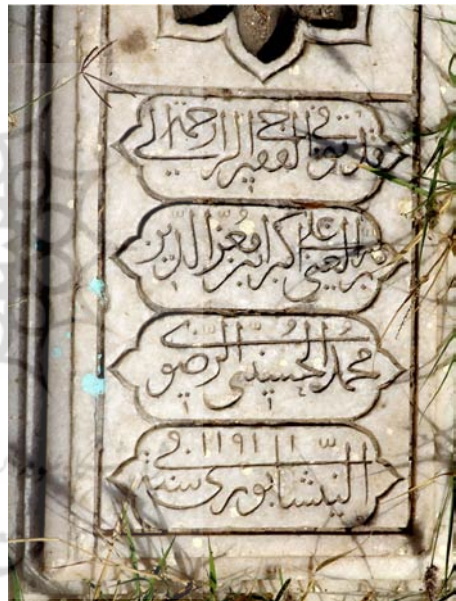 قد توفی الراجی الفقیر الی رحمة
ربه الغنی علی اکبر ابن معز الدین
محمد الحسینی الرضوی
النیشابوری فی سنة ۱۱۹۱